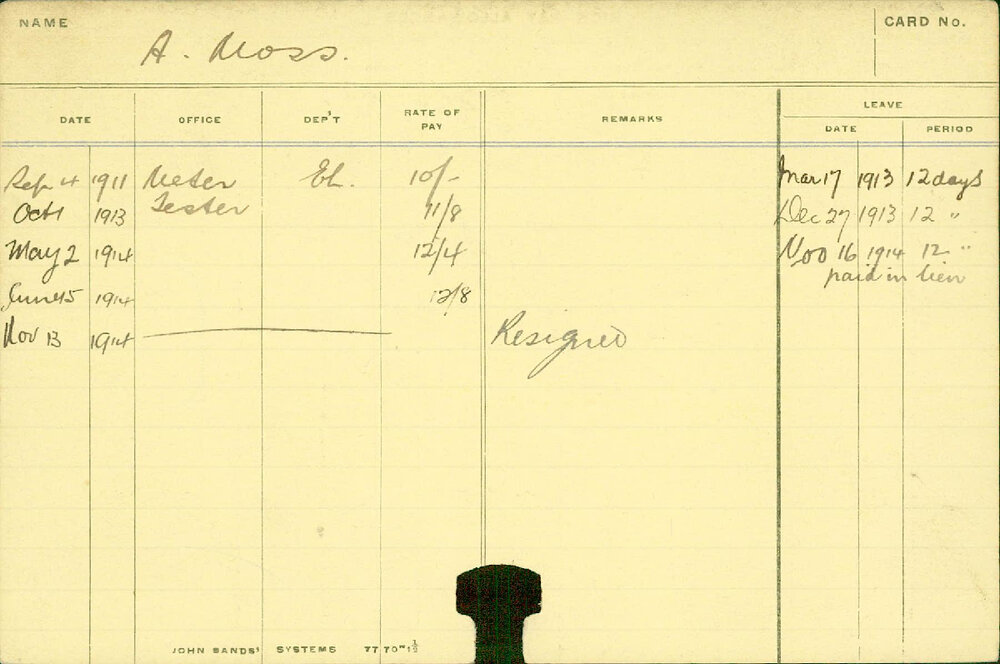 NAME
CARD No.
A. Moss.
DATE OFFICE DEP'T RATE OF PAY REMARKS LEAVE
DATE PERIOD
Sep 4 1911 Meter El. 10/- Mar 17 1913 12 days
Oct 1 1913 Tester 11/8 Dec 27 1913 12 "
May 2 1914 12/4 Nov 16 1914 12 "
paid in lieu
June 15 1914 12/8
Nov 13 1914 Resigned
JOHN SANDS' SYSTEMS 77 70